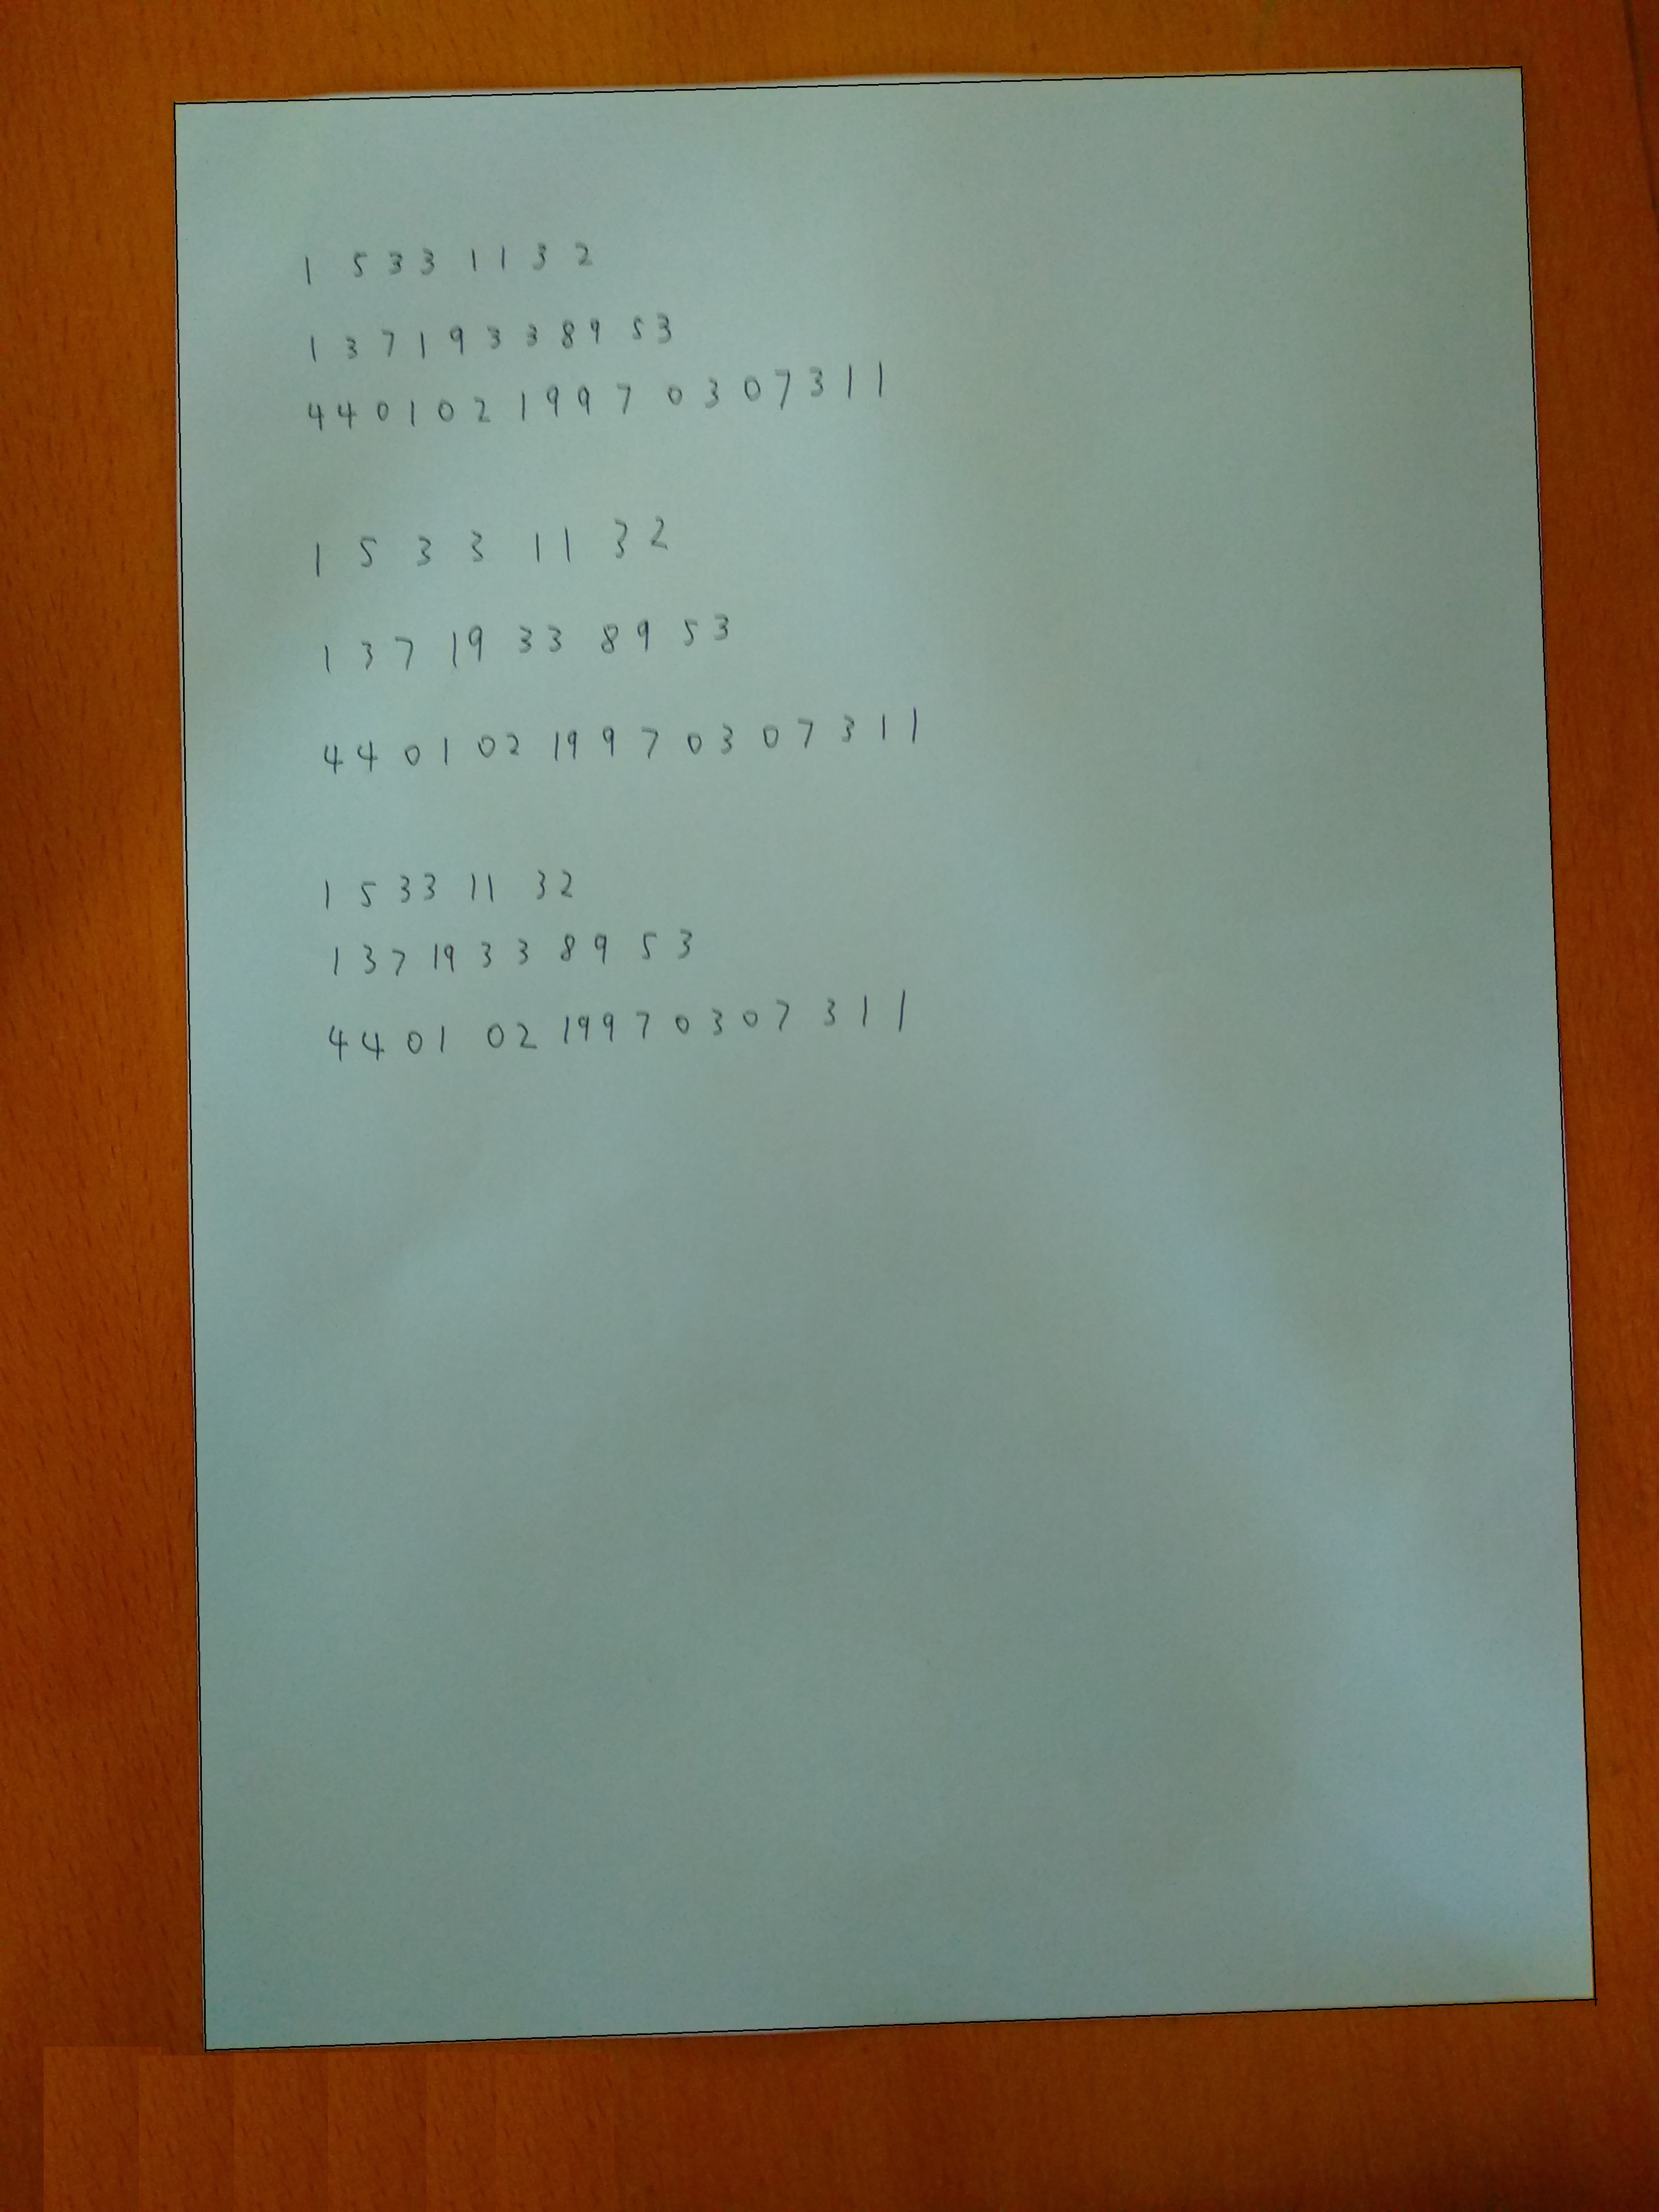 1 5 3 3 1 1 3 2
1 3 7 1 9 3 3 8 9 5 3
4 4 0 1 0 2 1 9 9 7 0 3 0 7 3 1 1
1 5 3 3 1 1 3 2
1 3 7 1 9 3 3 8 9 5 3
4 4 0 1 0 2 1 9 9 7 0 3 0 7 3 1 1
1 5 3 3 1 1 3 2
1 3 7 1 9 3 3 8 9 5 3
4 4 0 1 0 2 1 9 9 7 0 3 0 7 3 1 1